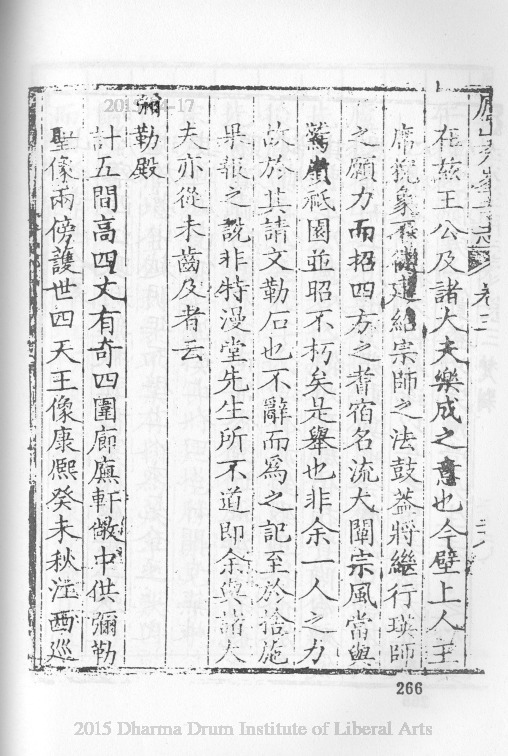 廬山秀峯寺志 卷三
在茲王公及諸大夫樂成之意也今璧上人主
席 象 建紹宗師之法鼓蓋將繼行瑛師
之願力而招四方之耆宿名流大闡宗風當與
鷲嶺祇園並昭不朽矣是舉也非余一人之力
故於其請文勒石也不辭而爲之記至於捨施
果報之說非特漫堂先生所不道即余與諸大
夫亦從未齒及者云
彌勒殿
計五間高四丈有奇四圍廊廡軒敞中供彌勒
聖像兩傍護世四天王像康熙癸未秋江西巡
266
2015 Dharma Drum Institute of Liberal Arts